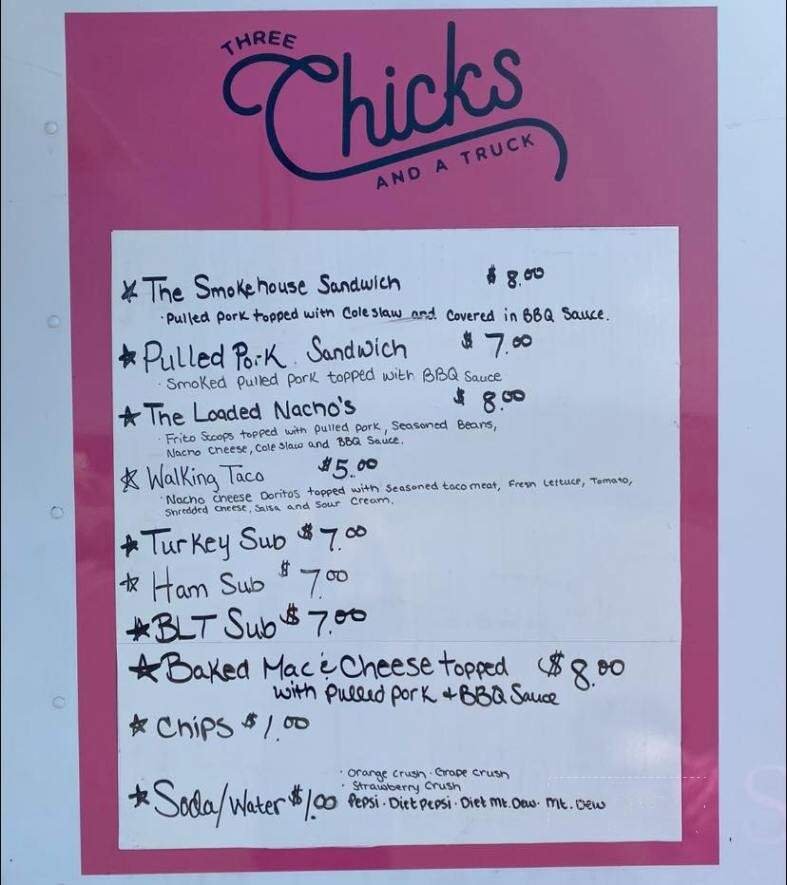 THREE
Chicks
AND A TRUCK
☆ The Smokehouse Sandwich $ 8.00
· Pulled pork topped with Coleslaw and covered in BBQ Sauce.
☆ Pulled Pork Sandwich $ 7.00
· Smoked pulled pork topped with BBQ Sauce
☆ The Loaded Nacho's $ 8.00
· Frito Scoops topped with pulled pork, Seasoned Beans,
Nacho cheese, Cole slaw and BBQ Sauce.
☆ Walking Taco $5.00
· Nacho cheese Doritos topped with seasoned taco meat, Fresh Lettuce, Tomato,
Shredded cheese, Salsa and Sour Cream.
☆ Turkey Sub $ 7.00
☆ Ham Sub $ 7.00
☆ BLT Sub $ 7.00
☆ Baked Mac & Cheese topped $8.00
with pulled pork + BBQ Sauce
☆ Chips $1.00
· Orange crush · Grape Crush
· Strawberry Crush
☆ Soda/Water $1.00 Pepsi · Diet Pepsi · Diet Mt. Dew · Mt. Dew